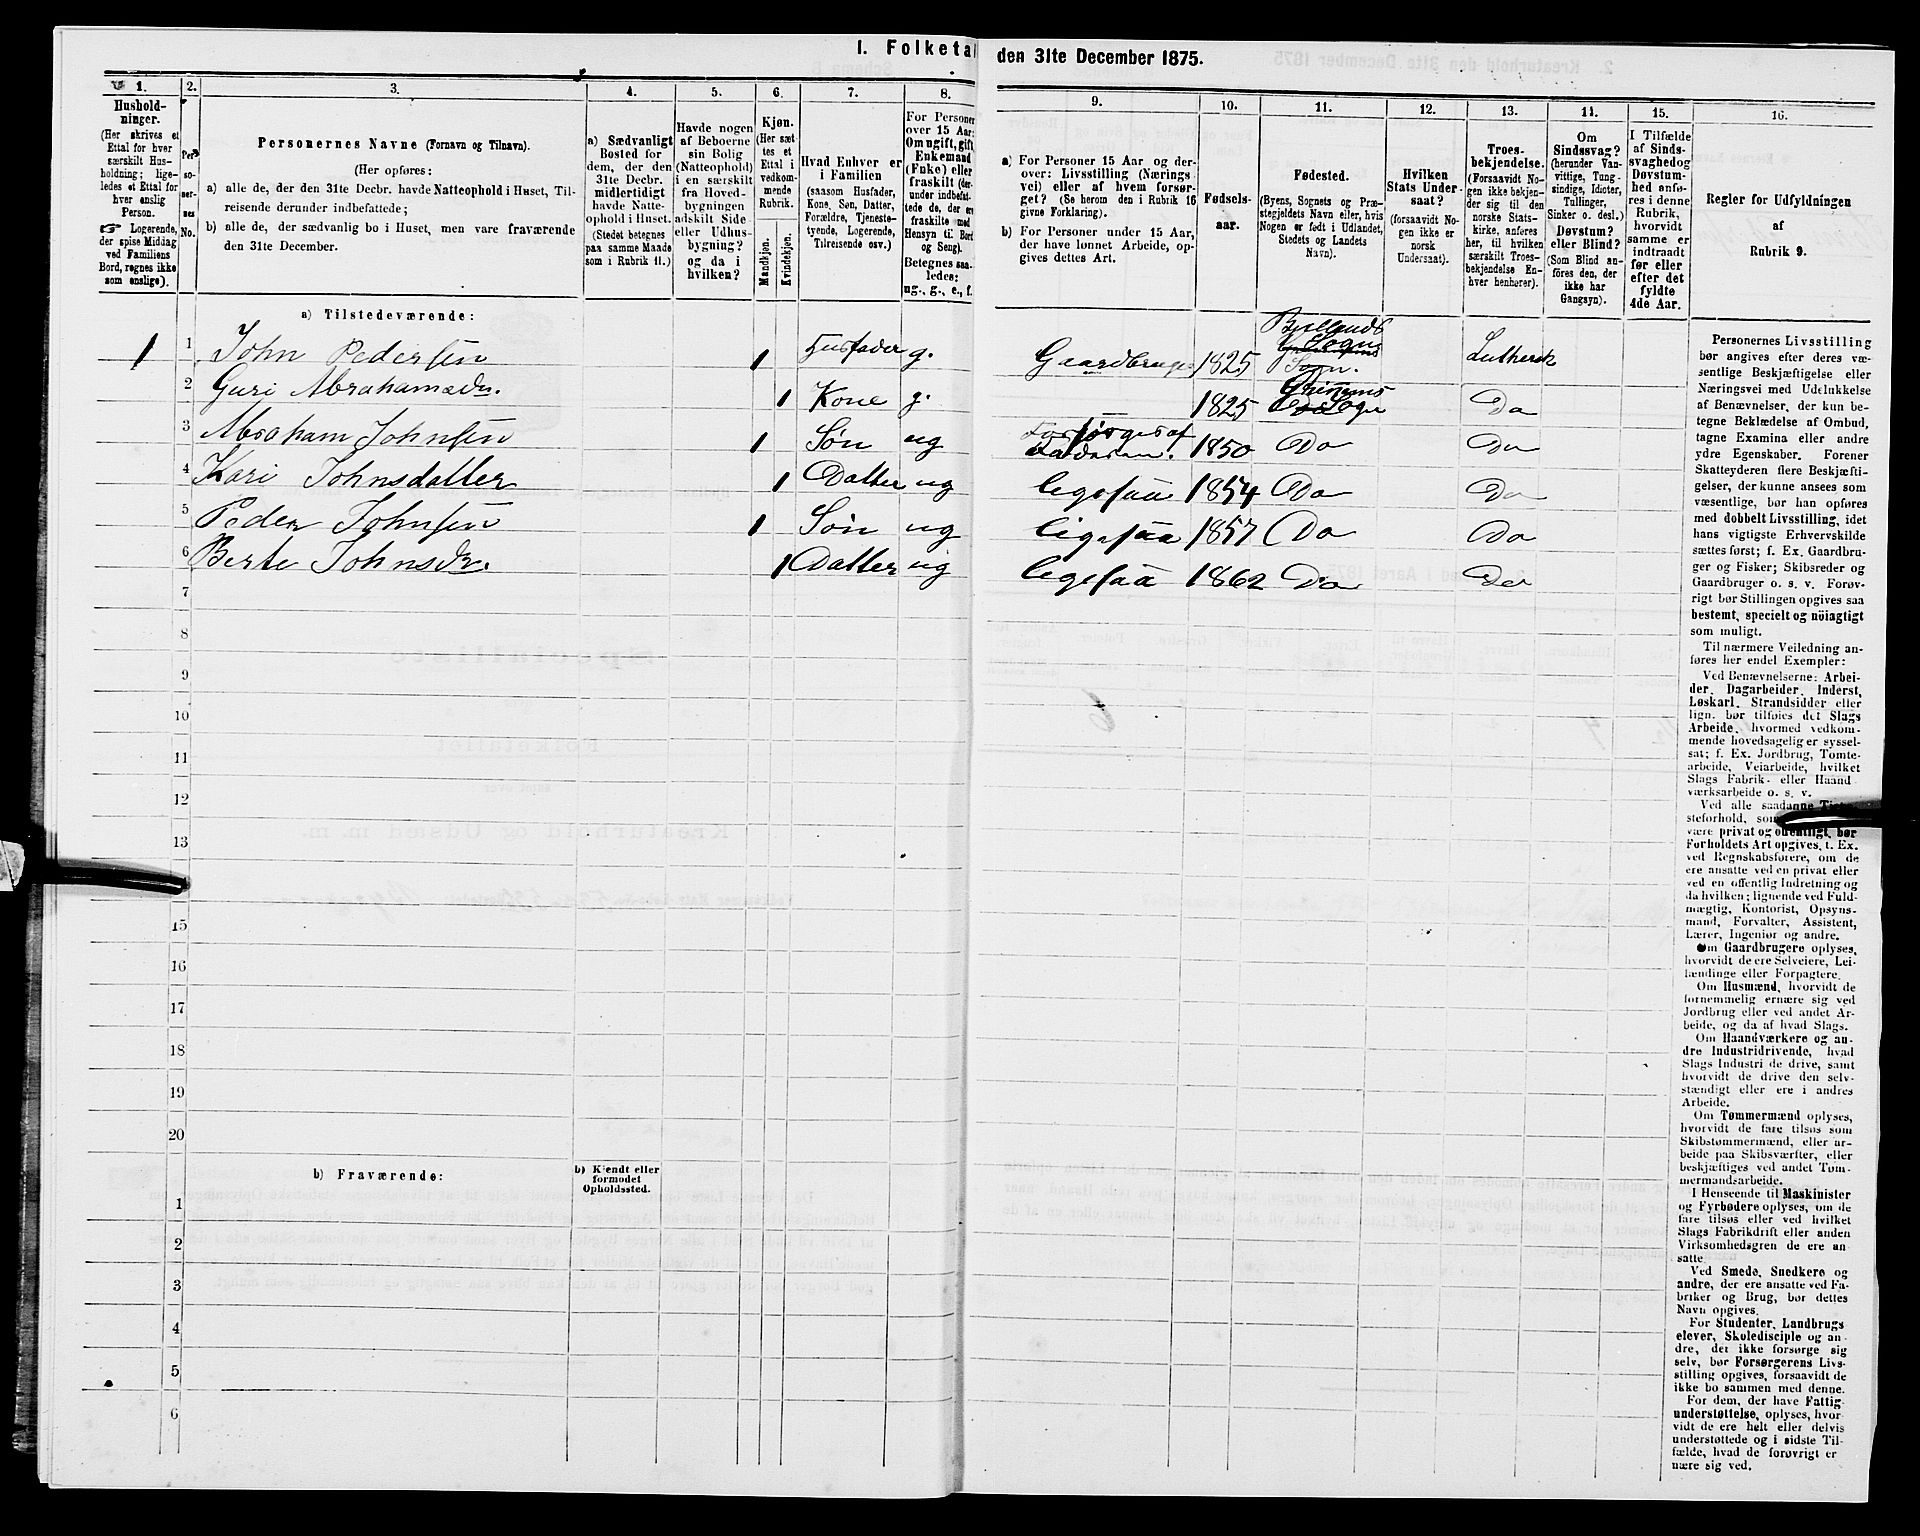 1. Folketal den 31te December 1875.
1.
Hushold-
ninger.
(Her skrives et
Ettal for hver
særskilt Hus-
holdning; lige-
ledes et Ettal for
hver enslig
Person.
☞ Logerende,
der spise Middag
ved Familiens
Bord, regnes ikke
som enslige).
2.
Per-
so-
ner-
nes
No.
3.
Personernes Navne (Fornavn og Tilnavn).
(Her opføres:
a) alle de, der den 31te Decbr. havde Natteophold i Huset, Til-
reisende derunder indbefattede;
b) alle de, der sædvanlig bo i Huset, men vare fraværende
den 31te December.
4.
a) Sædvanligt
Bosted for
dem, der den
31te Decbr.
midlertidigt
havde Natte-
ophold i Huset.
(Stedet betegnes
paa samme Maade
som i Rubrik 11.)
5.
Havde nogen
af Beboerne
sin Bolig
(Natteophold)
i en særskilt
fra Hoved-
bygningen
adskilt Side-
eller Udhus-
bygning?
og da i
hvilken?
6.
Kjøn.
(Her sæt-
tes et
Ettal i
vedkom-
mende
Rubrik.
Mandkjøn.
Kvindekjøn.
7.
Hvad Enhver er
i Familien
(saasom Husfader,
Kone, Søn, Datter,
Forældre, Tjeneste-
tyende, Logerende,
Tilreisende osv.)
8.
For Personer
over 15 Aar:
Om ugift, gift,
Enkemand
(Enke) eller
fraskilt (der-
under indbefat-
tede de, der ere
fraskilte med
Hensyn til Bord
og Seng).
Betegnes saa-
ledes:
ug., g., e., f.
9.
a) For Personer 15 Aar og der-
over: Livsstilling (Nærings
vei) eller af hvem forsør-
get? (Se herom den i Rubrik 16
givne Forklaring).
b) For Personer under 15 Aar,
der have lønnet Arbeide, op-
gives dettes Art.
10.
Fødsels-
aar.
11.
Fødested.
(Byens, Sognets og Præ-
stegjeldets Navn eller, hvis
Nogen er født i Udlandet,
Stedets og Landets
Navn).
12.
Hvilken
Stats Under-
saat?
(forsaavidt No-
gen ikke er
norsk
Undersaat).
13.
Troes-
bekjendelse.
(Forsaavidt No-
gen ikke bekjen-
der sig til den
norske Stats-
kirke, anføres
her, til hvilken
særskilt Troes-
bekjendelse En-
hver henhører).
14.
Om
Sindssvag?
(herunder Van-
vittige, Tung-
sindige, Idioter,
Tullinger,
Sinker o. desl.)
Døvstum?
eller Blind?
(Som Blind an-
føres den, der
ikke har
Gangsyn).
15.
I Tilfælde
af Sinds-
svaghed og
Døvstum-
hed anfø-
res i denne
Rubrik,
hvorvidt
samme er
indtraadt
før eller
efter det
fyldte
4de Aar.
16.
Regler for Udfyldningen
af
Rubrik 9.
a) Tilstedeværende:
1 1 John Pedersen 1 Husfader g. Gaardbruger 1825 Sogn. Luthersk
2 Guri Abrahamsdr. 1 Kone g. 1825 Sogn Do
3 Abraham Johnsen 1 Søn ug Forsørges af Faderen. 1850 Do Do
4 Kari Johnsdatter 1 Datter ug ligesaa 1854 Do Do
5 Peder Johnsen 1 Søn ug ligesaa 1857 Do Do
6 Berte Johnsdr. 1 Datter ug ligesaa 1862 Do Do
7
8
9
10
11
12
13
15
16
17
18
19
20
b) Fraværende:
b) Kjendt eller
formodet
Opholdssted.
1
2
3
4
5
6
Personernes Livsstilling
bør angives efter deres væ-
sentlige Beskjæftigelse eller
Næringsvei med Udelukkelse
af Benævnelser, der kun be-
tegne Beklædelse af Ombud,
tagne Examina eller andre
ydre Egenskaber. Forener
Skatteyderen flere Beskjæfti-
gelser, der kunne ansees som
væsentlige, bør han opføres
med dobbelt Livsstilling, idet
hans vigtigste Erhvervskilde
sættes først; f. Ex. Gaardbru-
ger og Fisker; Skibsreder og
Gaardbruger o. s. v. Forøv-
rigt bør Stillingen opgives saa
bestemt, specielt og nöiagtigt
som muligt.
Til nærmere Veiledning an-
føres her endel Exempler:
Ved Benævnelserne: Arbei-
der, Dagarbeider, Inderst,
Løskarl, Strandsidder eller
lign. bør tilføies det Slags
Arbeide, hvormed vedkom-
mende hovedsagelig er syssel-
sat; f. Ex. Jordbrug, Tomte-
arbeide, Veiarbeide, hvilket
Slags Fabrik- eller Haand
værksarbeide o. s. v.
Ved alle saadanne
steforhold,
være privat og offentligt, bør
Forholdets Art opgives, t. Ex.
ved Regnskabsførere, om de
ere ansatte ved en privat eller
ved en offentlig Indretning og
da hvilken; lignende ved Fuld-
mægtig, Kontorist, Opsyns-
mand, Forvalter, Assistent,
Lærer, Ingeniør og andre.
Om Gaardbrugere oplyses,
hvorvidt de ere Selveiere, Lei-
lændinge eller Forpagtere.
Om Husmænd, hvorvidt de
fornemmelig ernære sig ved
Jordbrug eller ved andet Ar-
beide, og da af hvad Slags.
Om Haandværkere og an-
dre Industridrivende, hvad
Slags Industri de drive, samt
hvorvidt de drive den selv-
stændigt eller ere i andres
Arbeide.
Om Tømmermænd oplyses,
hvorvidt de fare tilsøs som
Skibstømmermænd, eller ar-
beide paa Skibsværfter, eller
beskjæftiges ved andet Tøm-
mermandsarbeide.
I Henseende til Maskinister
og Fyrbødere oplyses, om de
fare tilsøs eller ved hvilket
Slags Fabrikdrift eller anden
Virksomhedsgren de ere an-
satte.
Ved Smede, Snedkere og
andre, der ere ansatte ved Fa-
briker og Brug, bør dettes
Navn opgives.
For Studenter, Landbrugs
elever, Skoledisciple og an-
dre, det ikke forsørge sig
selv, bør Forsørgerens Livs-
stilling opgives, forsaavidt de
ikke bo sammen med denne.
For dem, der have Fattig-
understøttelse, oplyses, hvor-
vidt de ere helt eller delvis
understøttede og i sidste Til-
fælde, hvad de forøvrigt er
nære sig ved.